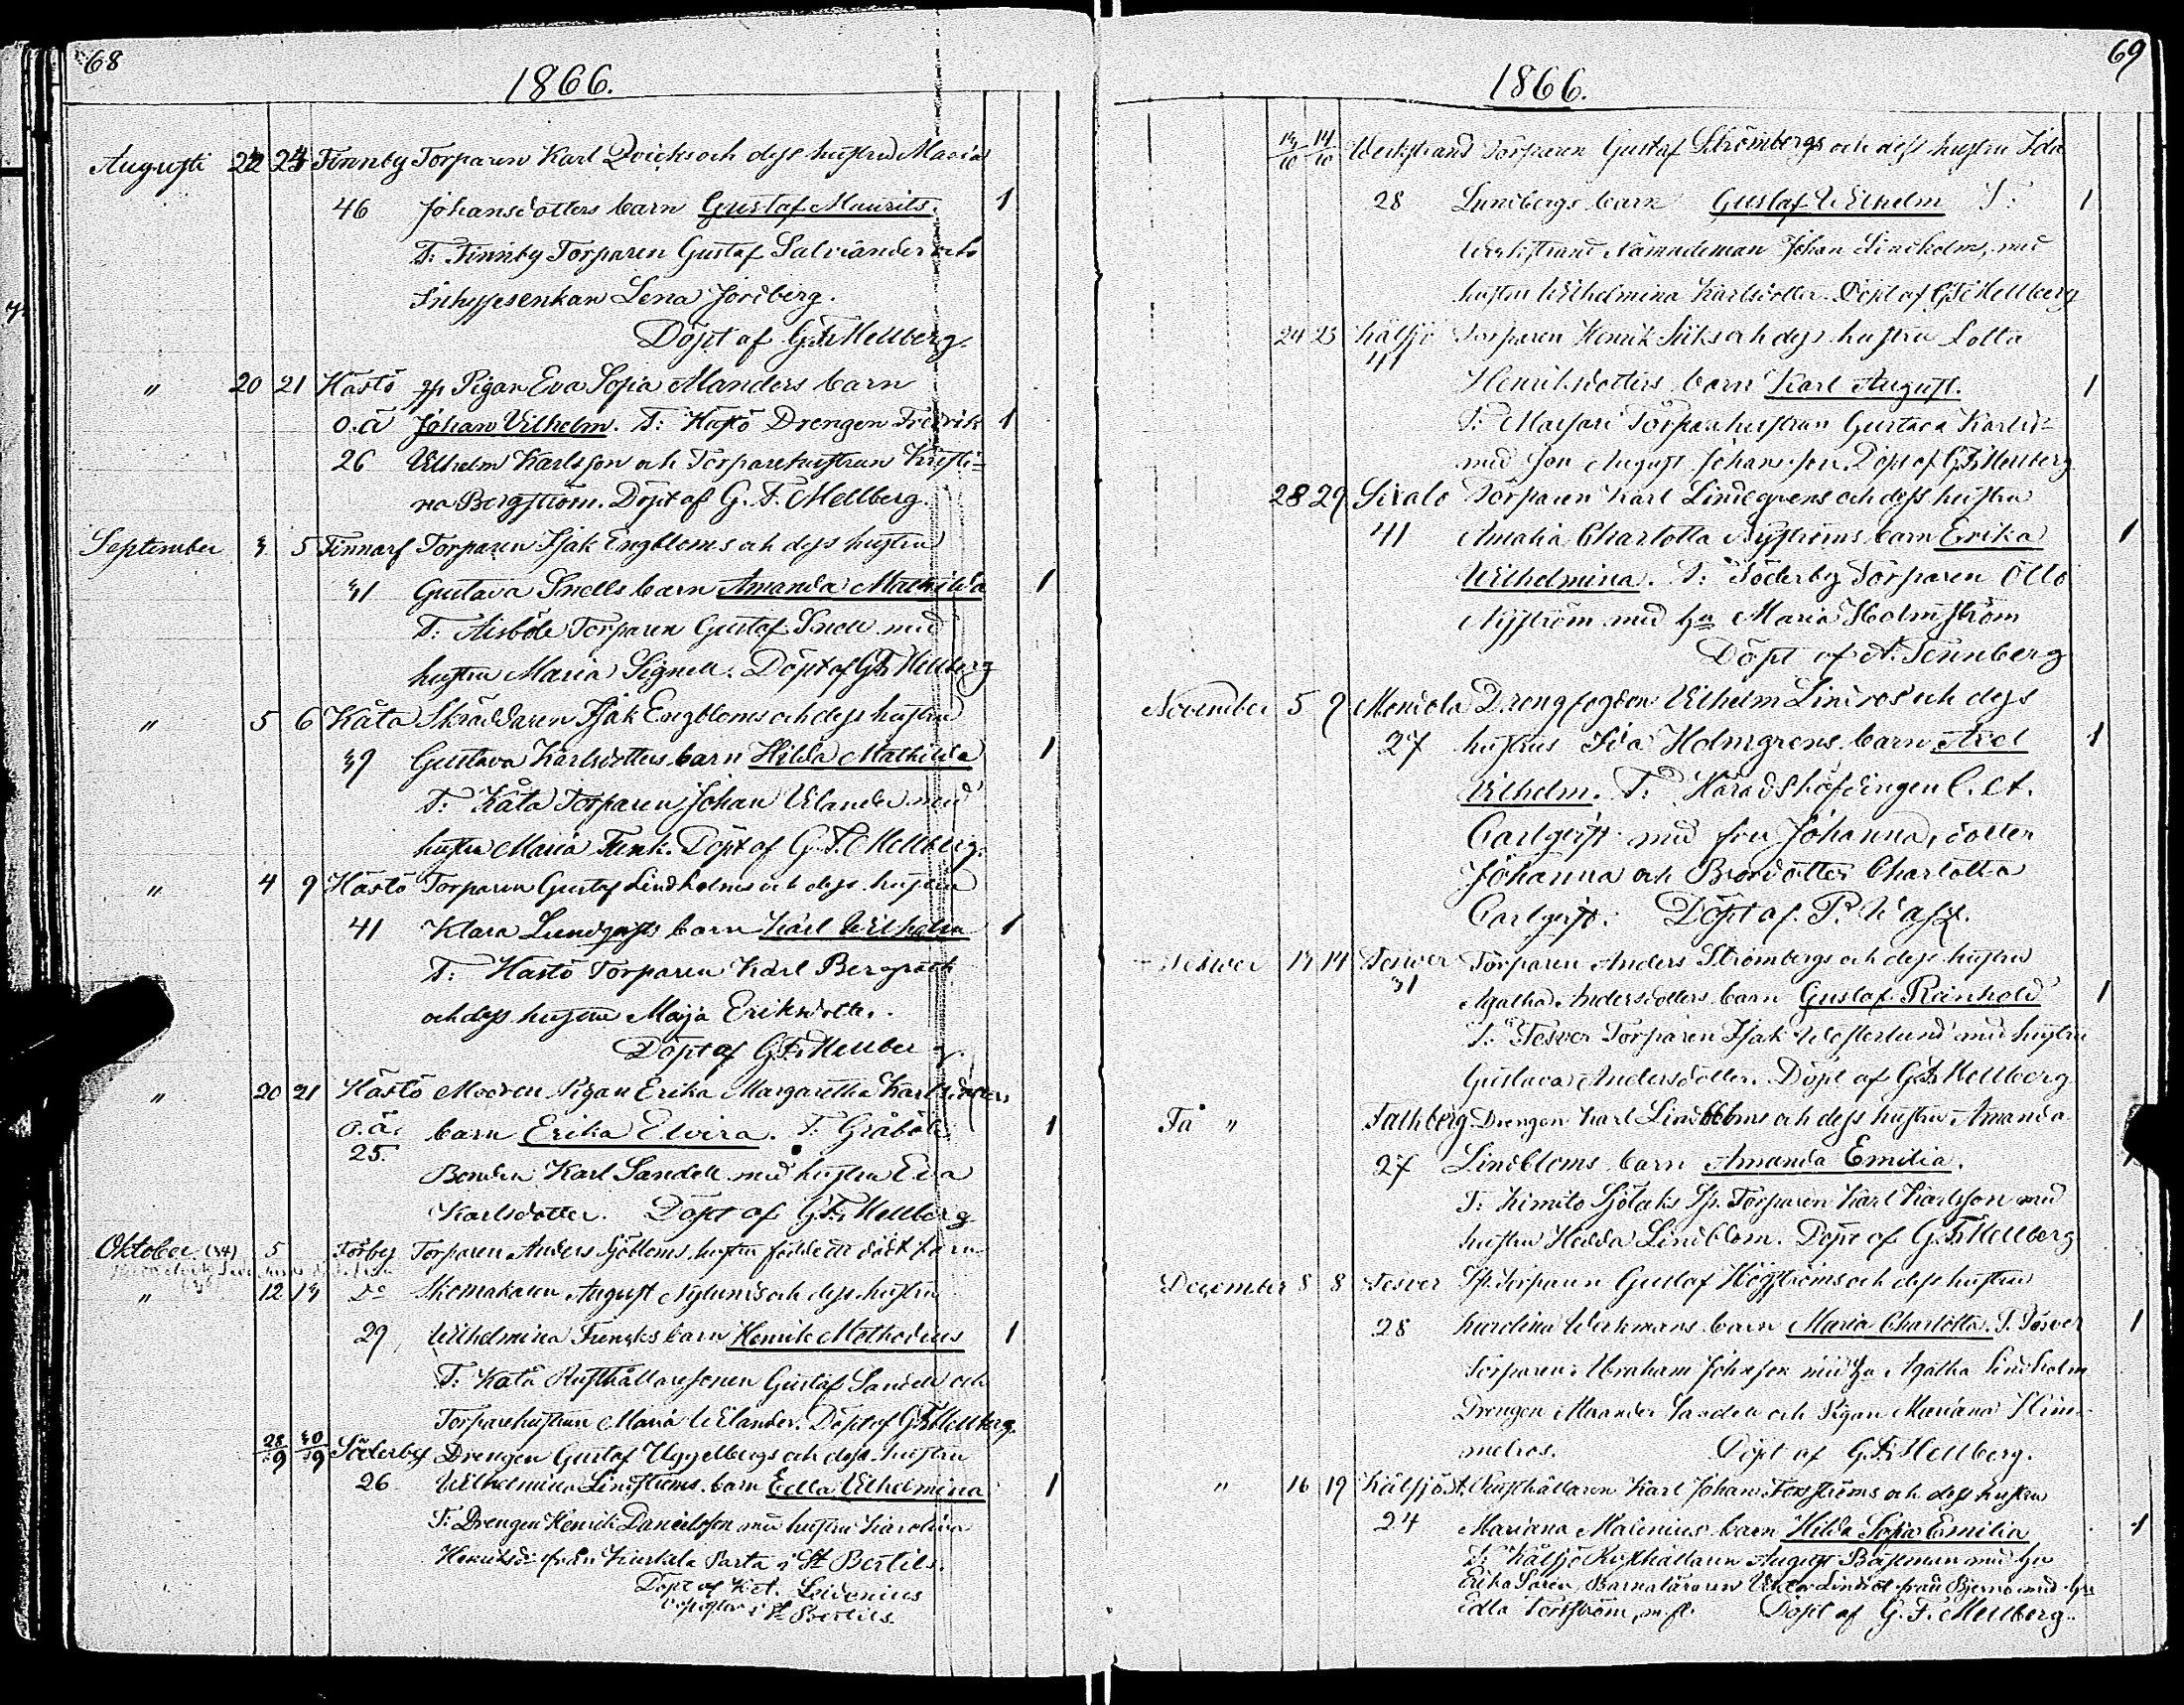 68
1866.
Augusti 22 24 Finnby Torparen Karl Qvicks och dess hustru Maria
46 Johansdotters barn Gustaf Maurits. 1
T: Finnby Torparen Gustaf Salviander och
Inhysesenkan Lena Jordberg.
Döpt af G.F. Mellberg.
" 20 21 Hästö Pigan Eva Sofia Manders barn
o.ä Johan Vilhelm. T: Hästö Drengen Fredrik 1
26 Vilhelm Karlsson och Torparehustrun Kristi-
na Bergström. Döpt af G. F. Mellberg.
September 3 5 Finnarf Torparen Isak Engbloms och dess hustru
31 Gustava Snells barn Amanda Mathilda 1
T: Aisböle Torparen Gustaf Snell med
hustru Maria Signell. Döpt af G.F. Mellberg
" 5 6 Kåta Skräddaren Isak Engbloms och dess hustru
39 Gustava Karlsdotters barn Hilda Mathilda 1
T: Kåta Torparen Johan Vilander med
hustru Maria Funk. Döpt af G.F. Mellberg.
" 4 9 Hästö Torparen Gustaf Lindholms och dess hustru
41 Klara Lundqvists barn Karl Wilhelm 1
T: Hästö Torparen Karl
och dess hustru Maja Eriksdotter.
Döpt af G.F. Mellberg.
" 20 21 Hästö Modren Pigan Erika Margaretha Karlsdotters
o.ä. barn Erika Elvira. T. Gråböle 1
25. Bonden Karl Sandell med hustru Eva
Karlsdotter. Döpt af G.F. Mellberg
Oktober (34) 5 Förby Torparen Anders Sjöbloms hustru födde ett dödt barn
" 12 13 Do Skomakaren August Nylunds och dess hustru
29 Wilhelmina Funcks barn Henrik Methodius 1
T: Kåta Rusthållaresonen Gustaf Sandell och
Torparehustrun Maria Wilander. Döpt af G.F. Mellberg.
28/9 30/9 Söderby Drengen Gustaf Uggelbergs och dess hustru
26 Wilhelmina Lindströms barn Edla Vilhelmina 1
T: Drengen Henrik Danielsson med hustru Karolina
Henriksdr från Kurkela Parta i St Bertils.
Döpt af Leidenius
i St Bertils.
69
1866.
13/10 14/10 Werkstrand Torparen Gustaf Strömbergs och dess hustru Ida
28 Lundbergs barn Gustaf Wilhelm T: 1
Werkstrand Nämndeman Johan Lindholm, med
hustru Wilhelmina Karlsdotter. Döpt af G.F. Mellberg
24 25 Kålsjö Torparen Henrik Siiks och dess hustru Lotta
41 Henriksdotters barn Karl August. 1
T: Torparehustrun Gustava Karlsdr
med son August Johansson. Döpt af G.F. Mellberg
28 29 Sixalo Torparen Karl Lindegrens och dess hustru
41 Amalia Charlotta Nyströms barn Erika 1
Wilhelmina. T: Söderby Torparen Otto
Nyström med hu Maria Holmström
Döpt af A. Tennberg
November 5 9 Meniola Drengfogden Vilhelm Lindros och dess
27 hustrus Ida Holmgrens barn Axel 1
Vilhelm. T: Häradshöfdingen C. A.
Carlqvist med fru Johanna, dotter
Johanna och Brorsdotter Charlotta
Carlqvist. Döpt af P. Wass.
Tesver 13 14 Tesver Torparen Anders Strömbergs och dess hustru
31 Agatha Andersdotters barn Gustaf Reinhold 1
T: Tesver Torparen Isak Westerlund med hustru
Gustava Andersdotter. Döpt af G.F. Mellberg
" Falkberg Drengen Karl Lindbloms och dess hustru Amanda
27 Lindbloms barn Amanda Emilia.
T: Kimito Sjölaks Sp. Torparen Karl Karlsson med
hustru Hedda Lindblom. Döpt af G.F. Mellberg
December 8 8 Tesver Sp. Torparen Gustaf Högströms och dess hustru
28 Karolina Werkmans barn Maria Charlotta. T. Tesver 1
Torparen Abraham Johnsson med hu Agatha Lindholm
Drengen Alexander Sandell och Pigan Mariana Him-
melros. Döpt af G.F. Mellberg.
" 16 19 Kålsjö St. Rusthållaren Karl Johan Forsströms och dess hustru
24 Mariana Malenius barn Hilda Sofia Emilia 1
T: Kålsjö Rusthållaren August Boxman med hu
Erika Sarén, Barnaläraren Viktor Lindros från Bjerno med hu
Edla Forsström, m.fl. Döpt af G. F. Mellberg.